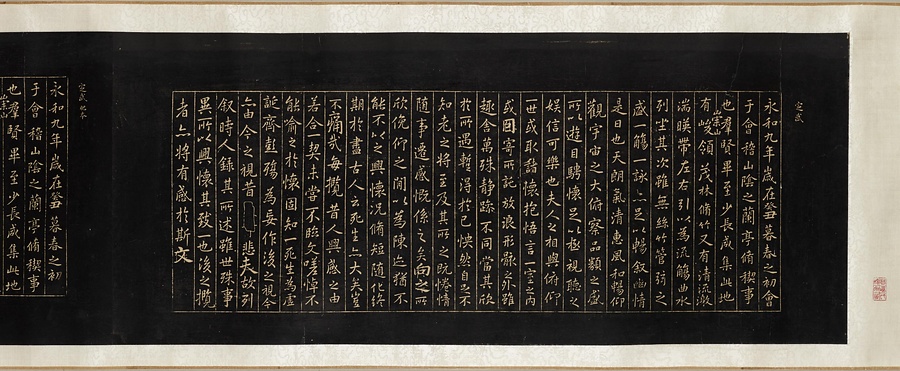 定武
永和九年歲在癸丑暮春之初會
于會稽山陰之蘭亭脩稧事
也羣賢畢至少長咸集此地
有崇山峻領茂林脩竹又有清流激
湍暎帶左右引以為流觴曲水
列坐其次雖無絲竹管弦之
盛一觴一詠亦足以暢敘幽情
是日也天朗氣清惠風和暢仰
觀宇宙之大俯察品類之盛
所以遊目騁懷足以極視聽之
娛信可樂也夫人之相與俯仰
一世或取諸懷抱悟言一室之內
或因寄所託放浪形骸之外雖
趣舍萬殊靜躁不同當其欣
於所遇暫得於己怏然自足不
知老之將至及其所之既惓情
隨事遷感慨係之矣向之所
欣俛仰之閒以為陳迹猶不
能不以之興懷況脩短隨化終
期於盡古人云死生亦大矣豈
不痛哉每攬昔人興感之由
若合一契未嘗不臨文嗟悼不
能喻之於懷固知一死生為虛
誕齊彭殤為妄作後之視今
亦由今之視昔悲夫故列
敘時人錄其所述雖世殊事
異所以興懷其致一也後之攬
者亦將有感於斯文
定武
永和九年歲在癸丑暮春之初
于會稽山陰之蘭亭脩稧事
也羣賢畢至少長咸集此地
崇山